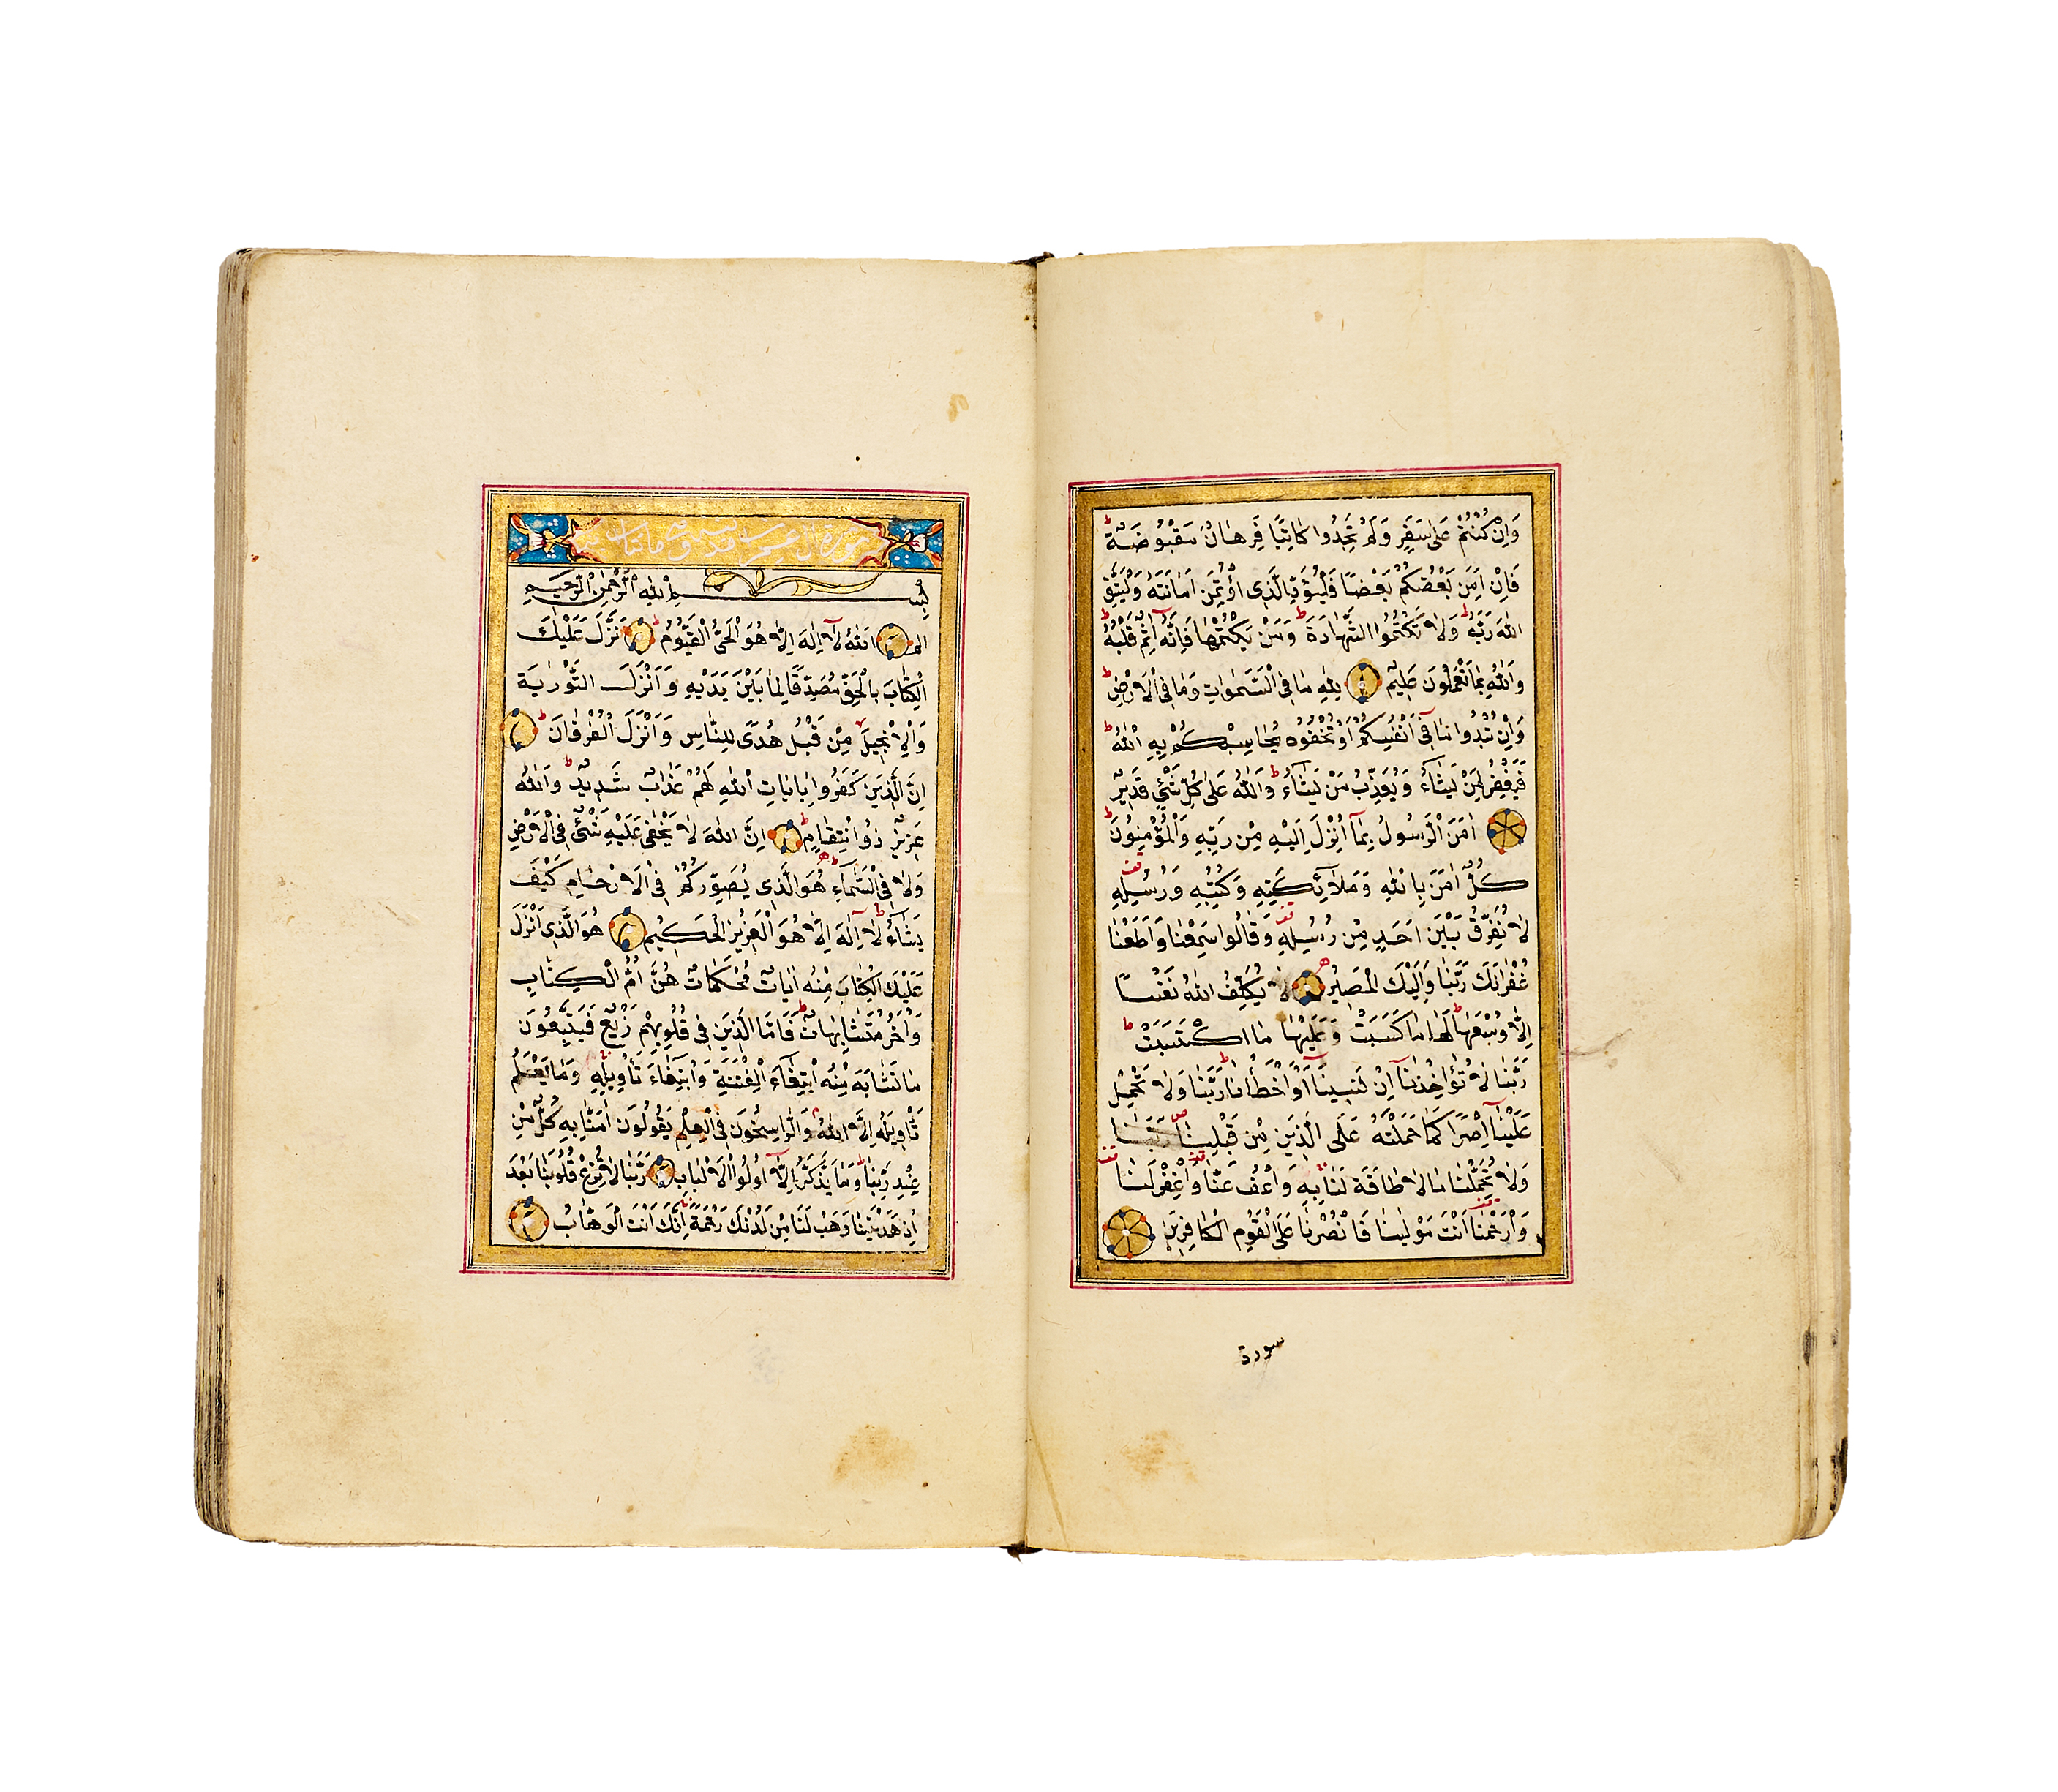 وَاِنْ كُنْتُمْ عَلٰى سَفَرٍ وَلَمْ تَجِدُوا كَاتِبًا فَرِهَانٌ مَقْبُوضَةٌ ط
فَاِنْ اَمِنَ بَعْضُكُمْ بَعْضًا فَلْيُؤَدِّ الَّذِى اؤْتُمِنَ اَمَانَتَهُ وَلْيَتَّقِ
اللّٰهَ رَبَّهُ ط وَلَا تَكْتُمُوا الشَّهَادَةَ ط وَمَنْ يَكْتُمْهَا فَاِنَّهُ اٰثِمٌ قَلْبُهُ ط
وَاللّٰهُ بِمَا تَعْمَلُونَ عَلِيمٌ لِلّٰهِ مَا فِى السَّمٰوَاتِ وَمَا فِى الْاَرْضِ ط
وَاِنْ تُبْدُوا مَا فِى اَنْفُسِكُمْ اَوْ تُخْفُوهُ يُحَاسِبْكُمْ بِهِ اللّٰهُ ط
فَيَغْفِرُ لِمَنْ يَشَاءُ وَيُعَذِّبُ مَنْ يَشَاءُ ط وَاللّٰهُ عَلٰى كُلِّ شَىْءٍ قَدِيرٌ
اٰمَنَ الرَّسُولُ بِمَا اُنْزِلَ اِلَيْهِ مِنْ رَبِّهِ وَالْمُؤْمِنُونَ ط
كُلٌّ اٰمَنَ بِاللّٰهِ وَمَلٰئِكَتِهِ وَكُتُبِهِ وَرُسُلِهِ قف
لَا نُفَرِّقُ بَيْنَ اَحَدٍ مِنْ رُسُلِهِ قف وَقَالُوا سَمِعْنَا وَاَطَعْنَا
غُفْرَانَكَ رَبَّنَا وَاِلَيْكَ الْمَصِيرُ لَا يُكَلِّفُ اللّٰهُ نَفْسًا
اِلَّا وُسْعَهَا ط لَهَا مَا كَسَبَتْ وَعَلَيْهَا مَا اكْتَسَبَتْ ط
رَبَّنَا لَا تُؤَاخِذْنَا اِنْ نَسِينَا اَوْ اَخْطَأْنَا ط رَبَّنَا وَلَا تَحْمِلْ
عَلَيْنَا اِصْرًا كَمَا حَمَلْتَهُ عَلَى الَّذِينَ مِنْ قَبْلِنَا رَبَّنَا
وَلَا تُحَمِّلْنَا مَا لَا طَاقَةَ لَنَا بِهِ وَاعْفُ عَنَّا قف وَاغْفِرْ لَنَا قف
وَارْحَمْنَا قف اَنْتَ مَوْلٰينَا فَانْصُرْنَا عَلَى الْقَوْمِ الْكَافِرِينَ
سورة
سورة ال عمران وهى مائتان
بِسْمِ اللّٰهِ الرَّحْمٰنِ الرَّحِيمِ
الم اَللّٰهُ لَا اِلٰهَ اِلَّا هُوَ الْحَىُّ الْقَيُّومُ ط نَزَّلَ عَلَيْكَ
الْكِتَابَ بِالْحَقِّ مُصَدِّقًا لِمَا بَيْنَ يَدَيْهِ وَاَنْزَلَ التَّوْرٰيةَ
وَالْاِنْجِيلَ لا مِنْ قَبْلُ هُدًى لِلنَّاسِ وَاَنْزَلَ الْفُرْقَانَ ط
اِنَّ الَّذِينَ كَفَرُوا بِاٰيَاتِ اللّٰهِ لَهُمْ عَذَابٌ شَدِيدٌ ط وَاللّٰهُ
عَزِيزٌ ذُو انْتِقَامٍ ط اِنَّ اللّٰهَ لَا يَخْفٰى عَلَيْهِ شَىْءٌ فِى الْاَرْضِ
وَلَا فِى السَّمَاءِ ط هُوَ الَّذِى يُصَوِّرُكُمْ فِى الْاَرْحَامِ كَيْفَ
يَشَاءُ ط لَا اِلٰهَ اِلَّا هُوَ الْعَزِيزُ الْحَكِيمُ هُوَ الَّذِى اَنْزَلَ
عَلَيْكَ الْكِتَابَ مِنْهُ اٰيَاتٌ مُحْكَمَاتٌ هُنَّ اُمُّ الْكِتَابِ
وَاُخَرُ مُتَشَابِهَاتٌ ط فَاَمَّا الَّذِينَ فِى قُلُوبِهِمْ زَيْغٌ فَيَتَّبِعُونَ
مَا تَشَابَهَ مِنْهُ ابْتِغَاءَ الْفِتْنَةِ وَابْتِغَاءَ تَأْوِيلِهِ وَمَا يَعْلَمُ
تَأْوِيلَهُ اِلَّا اللّٰهُ م وَالرَّاسِخُونَ فِى الْعِلْمِ يَقُولُونَ اٰمَنَّا بِهِ كُلٌّ مِنْ
عِنْدِ رَبِّنَا وَمَا يَذَّكَّرُ اِلَّا اُولُوا الْاَلْبَابِ رَبَّنَا لَا تُزِغْ قُلُوبَنَا بَعْدَ
اِذْ هَدَيْتَنَا وَهَبْ لَنَا مِنْ لَدُنْكَ رَحْمَةً اِنَّكَ اَنْتَ الْوَهَّابُ